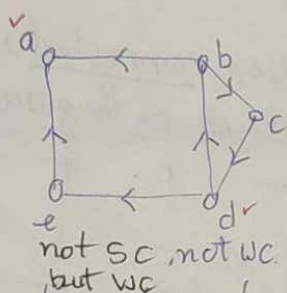 a
b
c
e
d
not SC, not WC.
, but WC